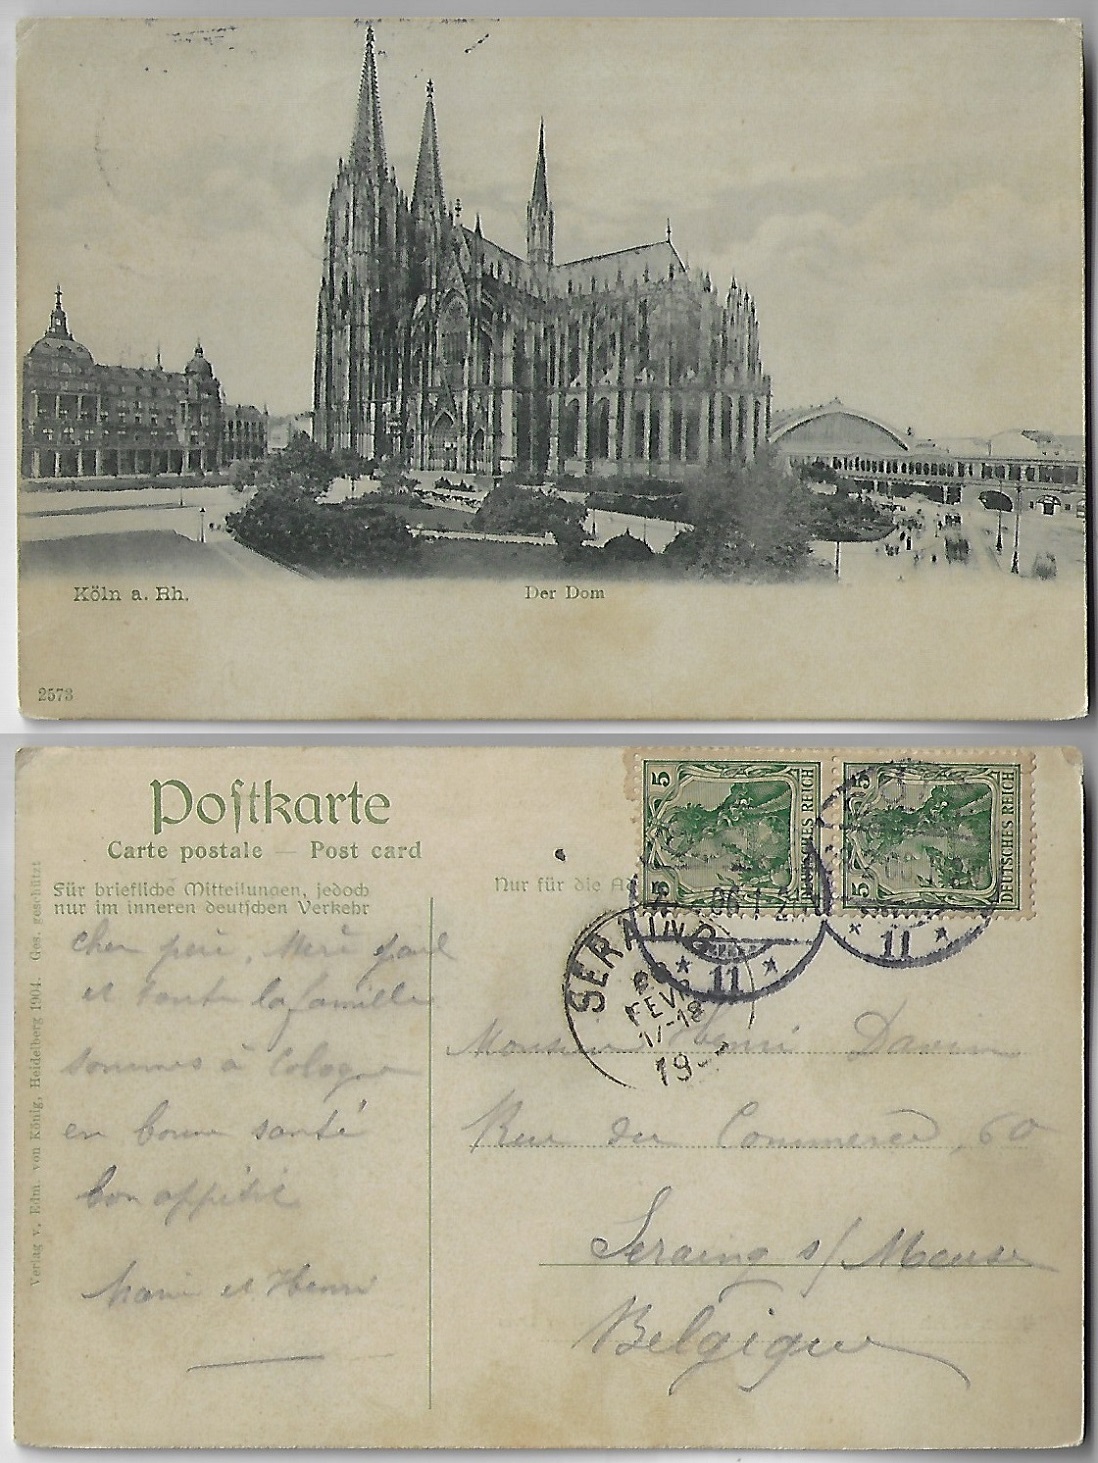 Köln a. Rh.
Der Dom
2573
Postkarte
Carte postale — Post card
Für briefliche Mitteilungen, jedoch
nur im inneren deutschen Verkehr
Nur für die Ad
Verlag v. Edm. von König, Heidelberg 1904. Ges. geschützt
5 5 DEUTSCHES REICH
5 5 DEUTSCHES REICH
* 11 *
* 11 *
SERAING
FEVR
17-18
19
cher père, Mère
et toute la famille
sommes à Cologne
en bonne santé
bon appétit
Marie et Henri
Monsieur Henri Davin
Rue du Commerce, 60
Seraing s/Meuse
Belgique